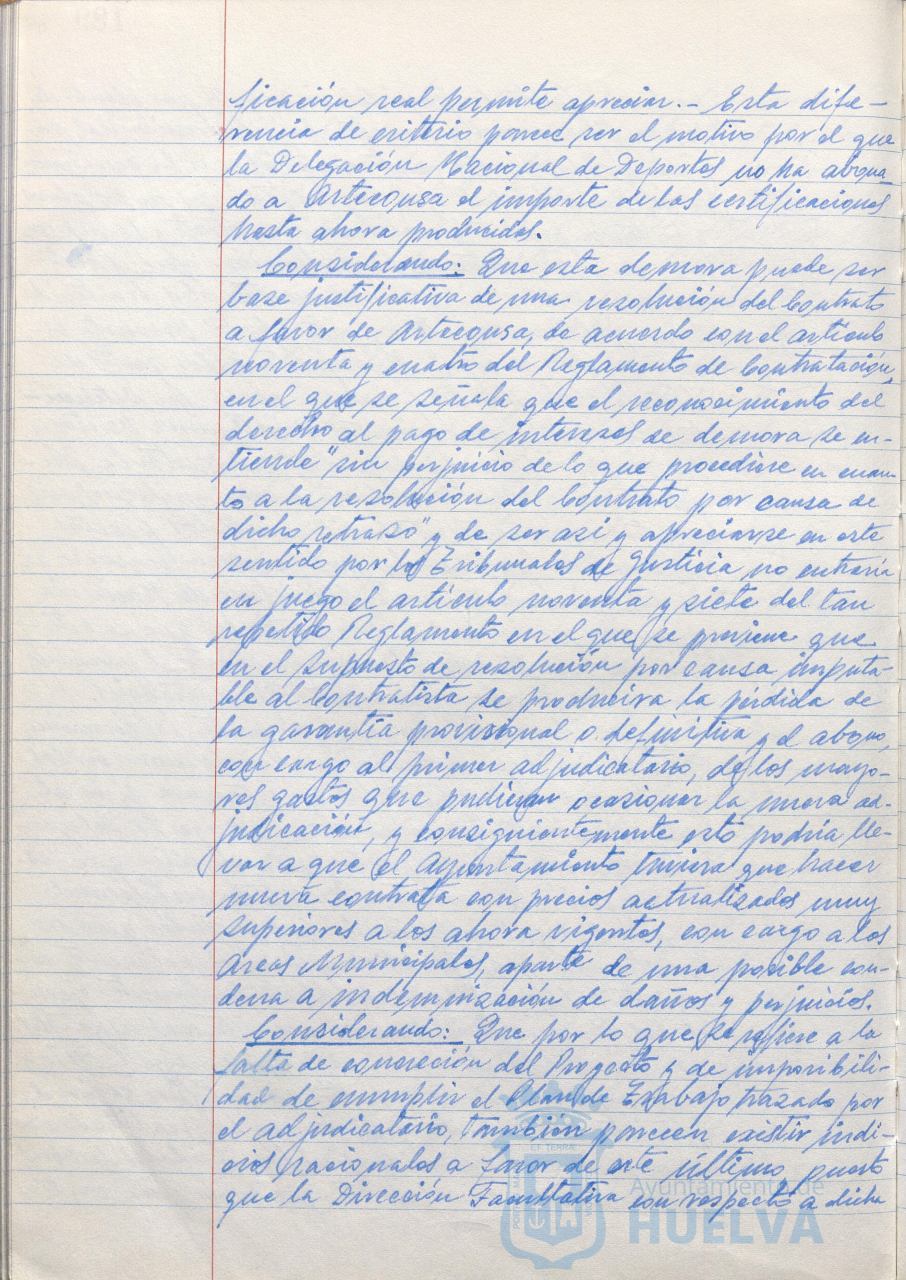 ficación real permite apreciar.- Esta dife-
rencia de criterio parece ser el motivo por el que
la Delegación Nacional de Deportes no ha abona-
do a Arteconsa el importe de las certificaciones
hasta ahora producidas.
Considerando: Que esta demora puede ser
base justificativa de una resolución del Contrato
a favor de Arteconsa, de acuerdo con el artículo
noventa y cuatro del Reglamento de Contratación,
en el que se señala que el reconocimiento del
derecho al pago de intereses de demora se en-
tiende "sin perjuicio de lo que procediere en cuan-
to a la resolución del Contrato por causa de
dicho retraso" y de ser así y apreciarse en este
sentido por los Tribunales de Justicia no entraría
en juego el artículo noventa y siete del tan
repetido Reglamento en el que se previene que
en el supuesto de resolución por causa imputa-
ble al Contratista se producirá la pérdida de
la garantía provisional o definitiva y el abono,
con cargo al primer adjudicatario, de los mayo-
res gastos que pudieran ocasionar la nueva ad-
judicación, y consiguientemente esto podría lle-
var a que el Ayuntamiento tuviera que hacer
nueva contrata con precios actualizados muy
superiores a los ahora vigentes, con cargo a las
Arcas Municipales, aparte de una posible con-
dena a indemnización de daños y perjuicios.
Considerando: Que por lo que se refiere a la
falta de concreción del Proyecto y de imposibili-
dad de cumplir el Plan de Trabajo trazado por
el adjudicatario, también parecen existir indi-
cios racionales a favor de este último puesto
que la Dirección Facultativa con respecto a dicha
Ayuntamiento de
HUELVA